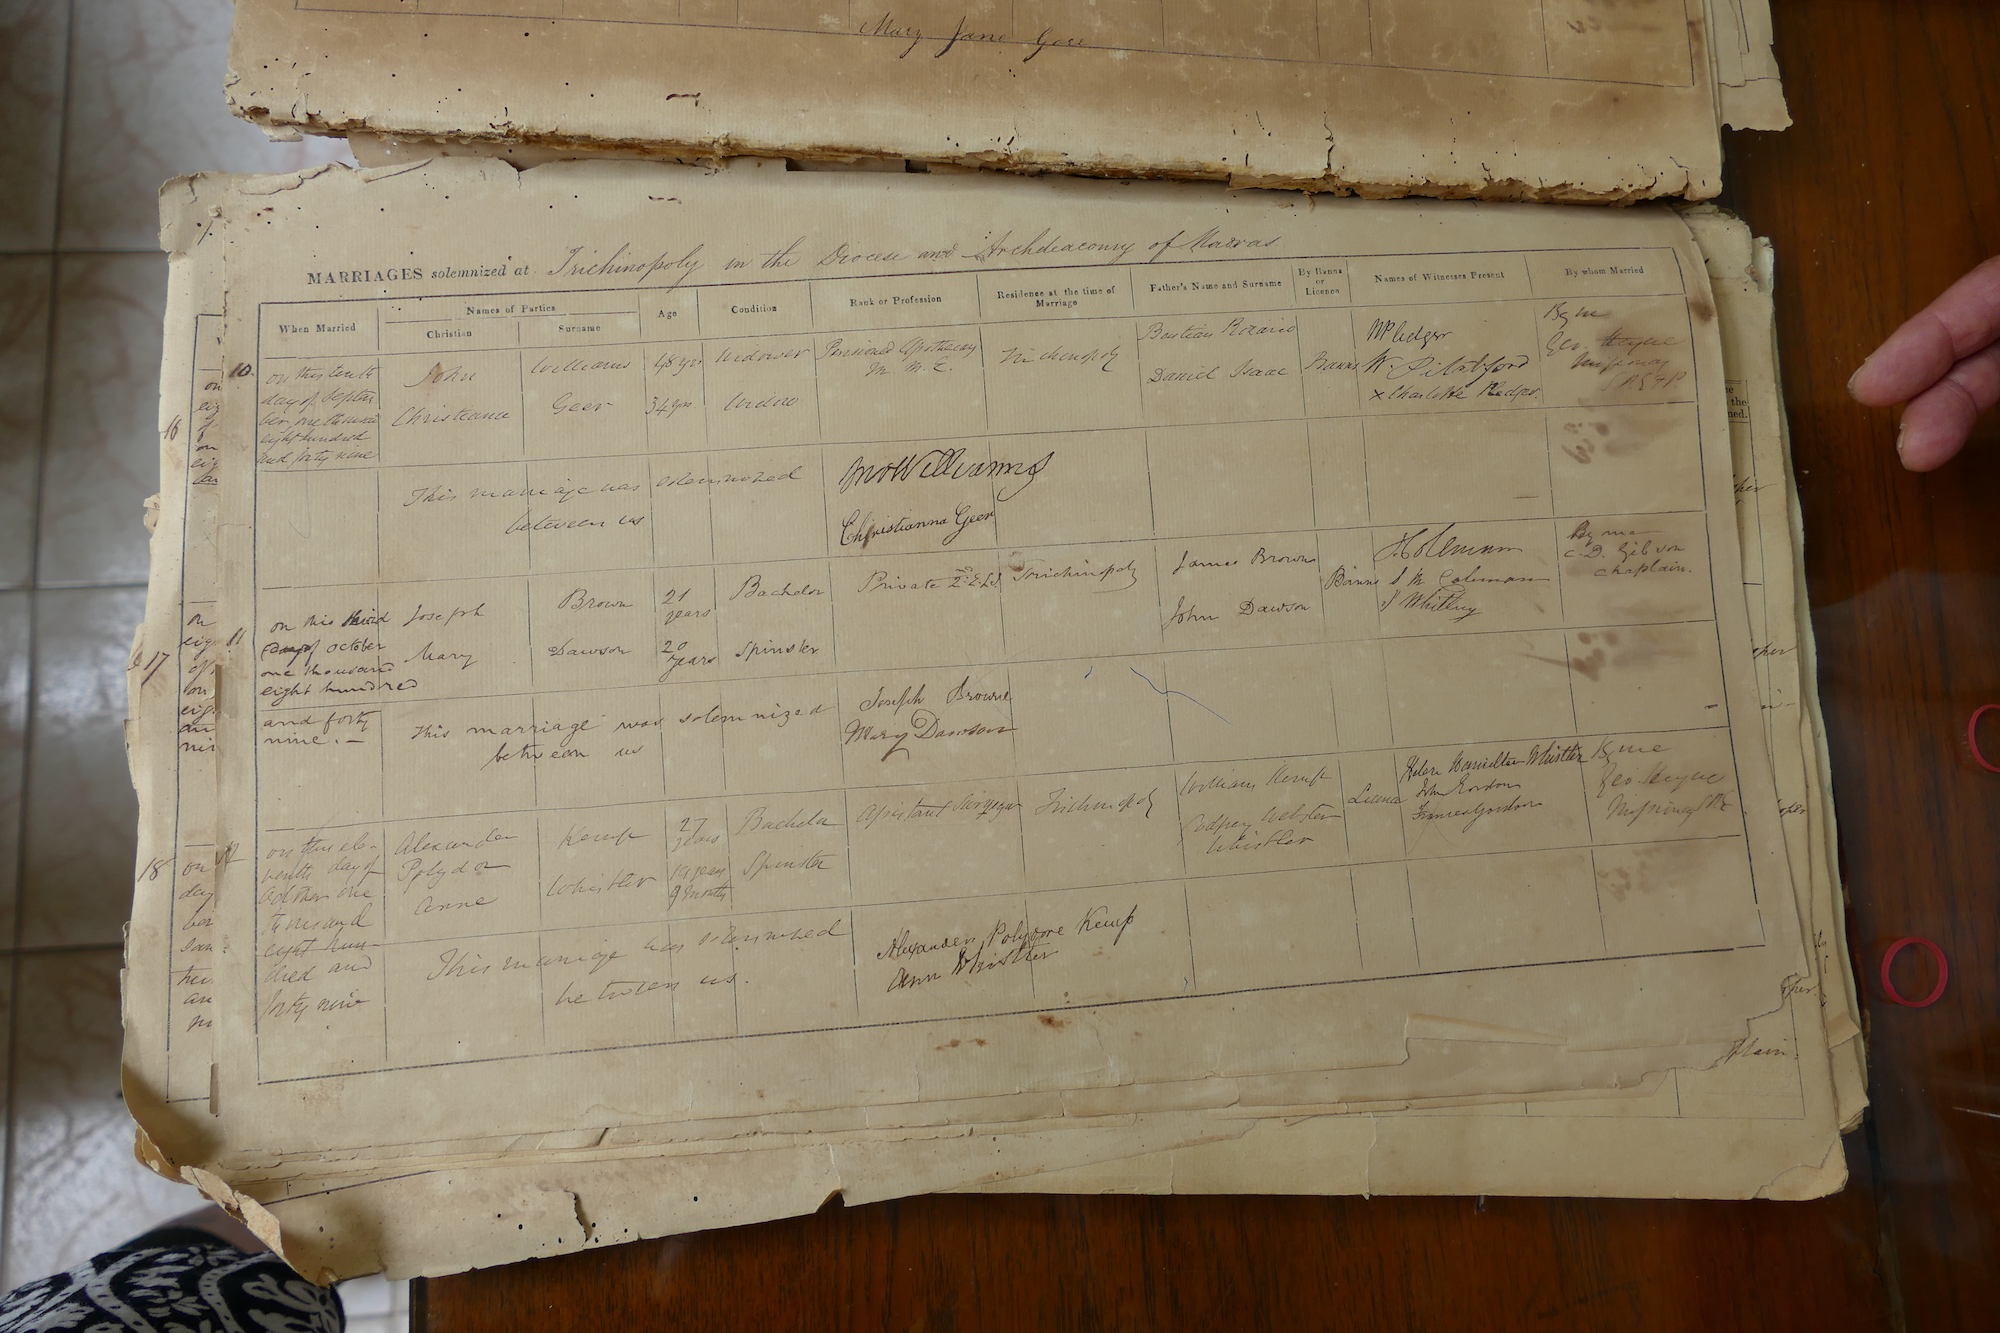 Mary Jane Gore
MARRIAGES solemnized at Trichinopoly in the Diocese and Archdeaconry of Madras
When Married
Names of Parties
Christian
Surname
Age
Condition
Rank or Profession
Residence at the time of Marriage
Father's Name and Surname
By Banns or Licence
Names of Witnesses Present
By whom Married
10.
on this tenth
day of Septem
ber, one thousand
eight hundred
and forty nine
John
Christiana
Williams
Geer
48 yrs
34 yrs
Widower
Widow
Pensioned Apothecary
Trichinopoly
Bastian Rozario
Daniel Isaac
Banns
W Pledger
x Charlotte Pledger.
By me
Geo. Heyne
This marriage was solemnized
between us
Jno Williams
Christianna Geer
11
on this third
day of october
one thousand
eight hundred
and forty
nine. —
Joseph
Mary
Brown
Dawson
21 years
20 years
Bachelor
Spinster
Private 2nd
Trichinopoly
James Brown
John Dawson
Banns
Coleman
S M Coleman
J Whitley
By me
C. D. Gibson
chaplain.
This marriage was solemnized
between us
Joseph Browne
Mary Dawson
12
on this ele-
venth day of
October one
thousand
eight hun-
dred and
forty nine
Alexander
Polydor
Anne
Kemp
Whistler
27 years
19 years
9 months
Bachelor
Spinster
Assistant Surgeon
Trichinopoly
William Kemp
Godfrey Webster
Whistler
Licence
Helen Hamilton Whistler
John Gordon
Frances Gordon
By me
Geo Heyne
This marriage was solemnized
between us.
Alexander Polydore Kemp
Ann Whistler
16
17
18